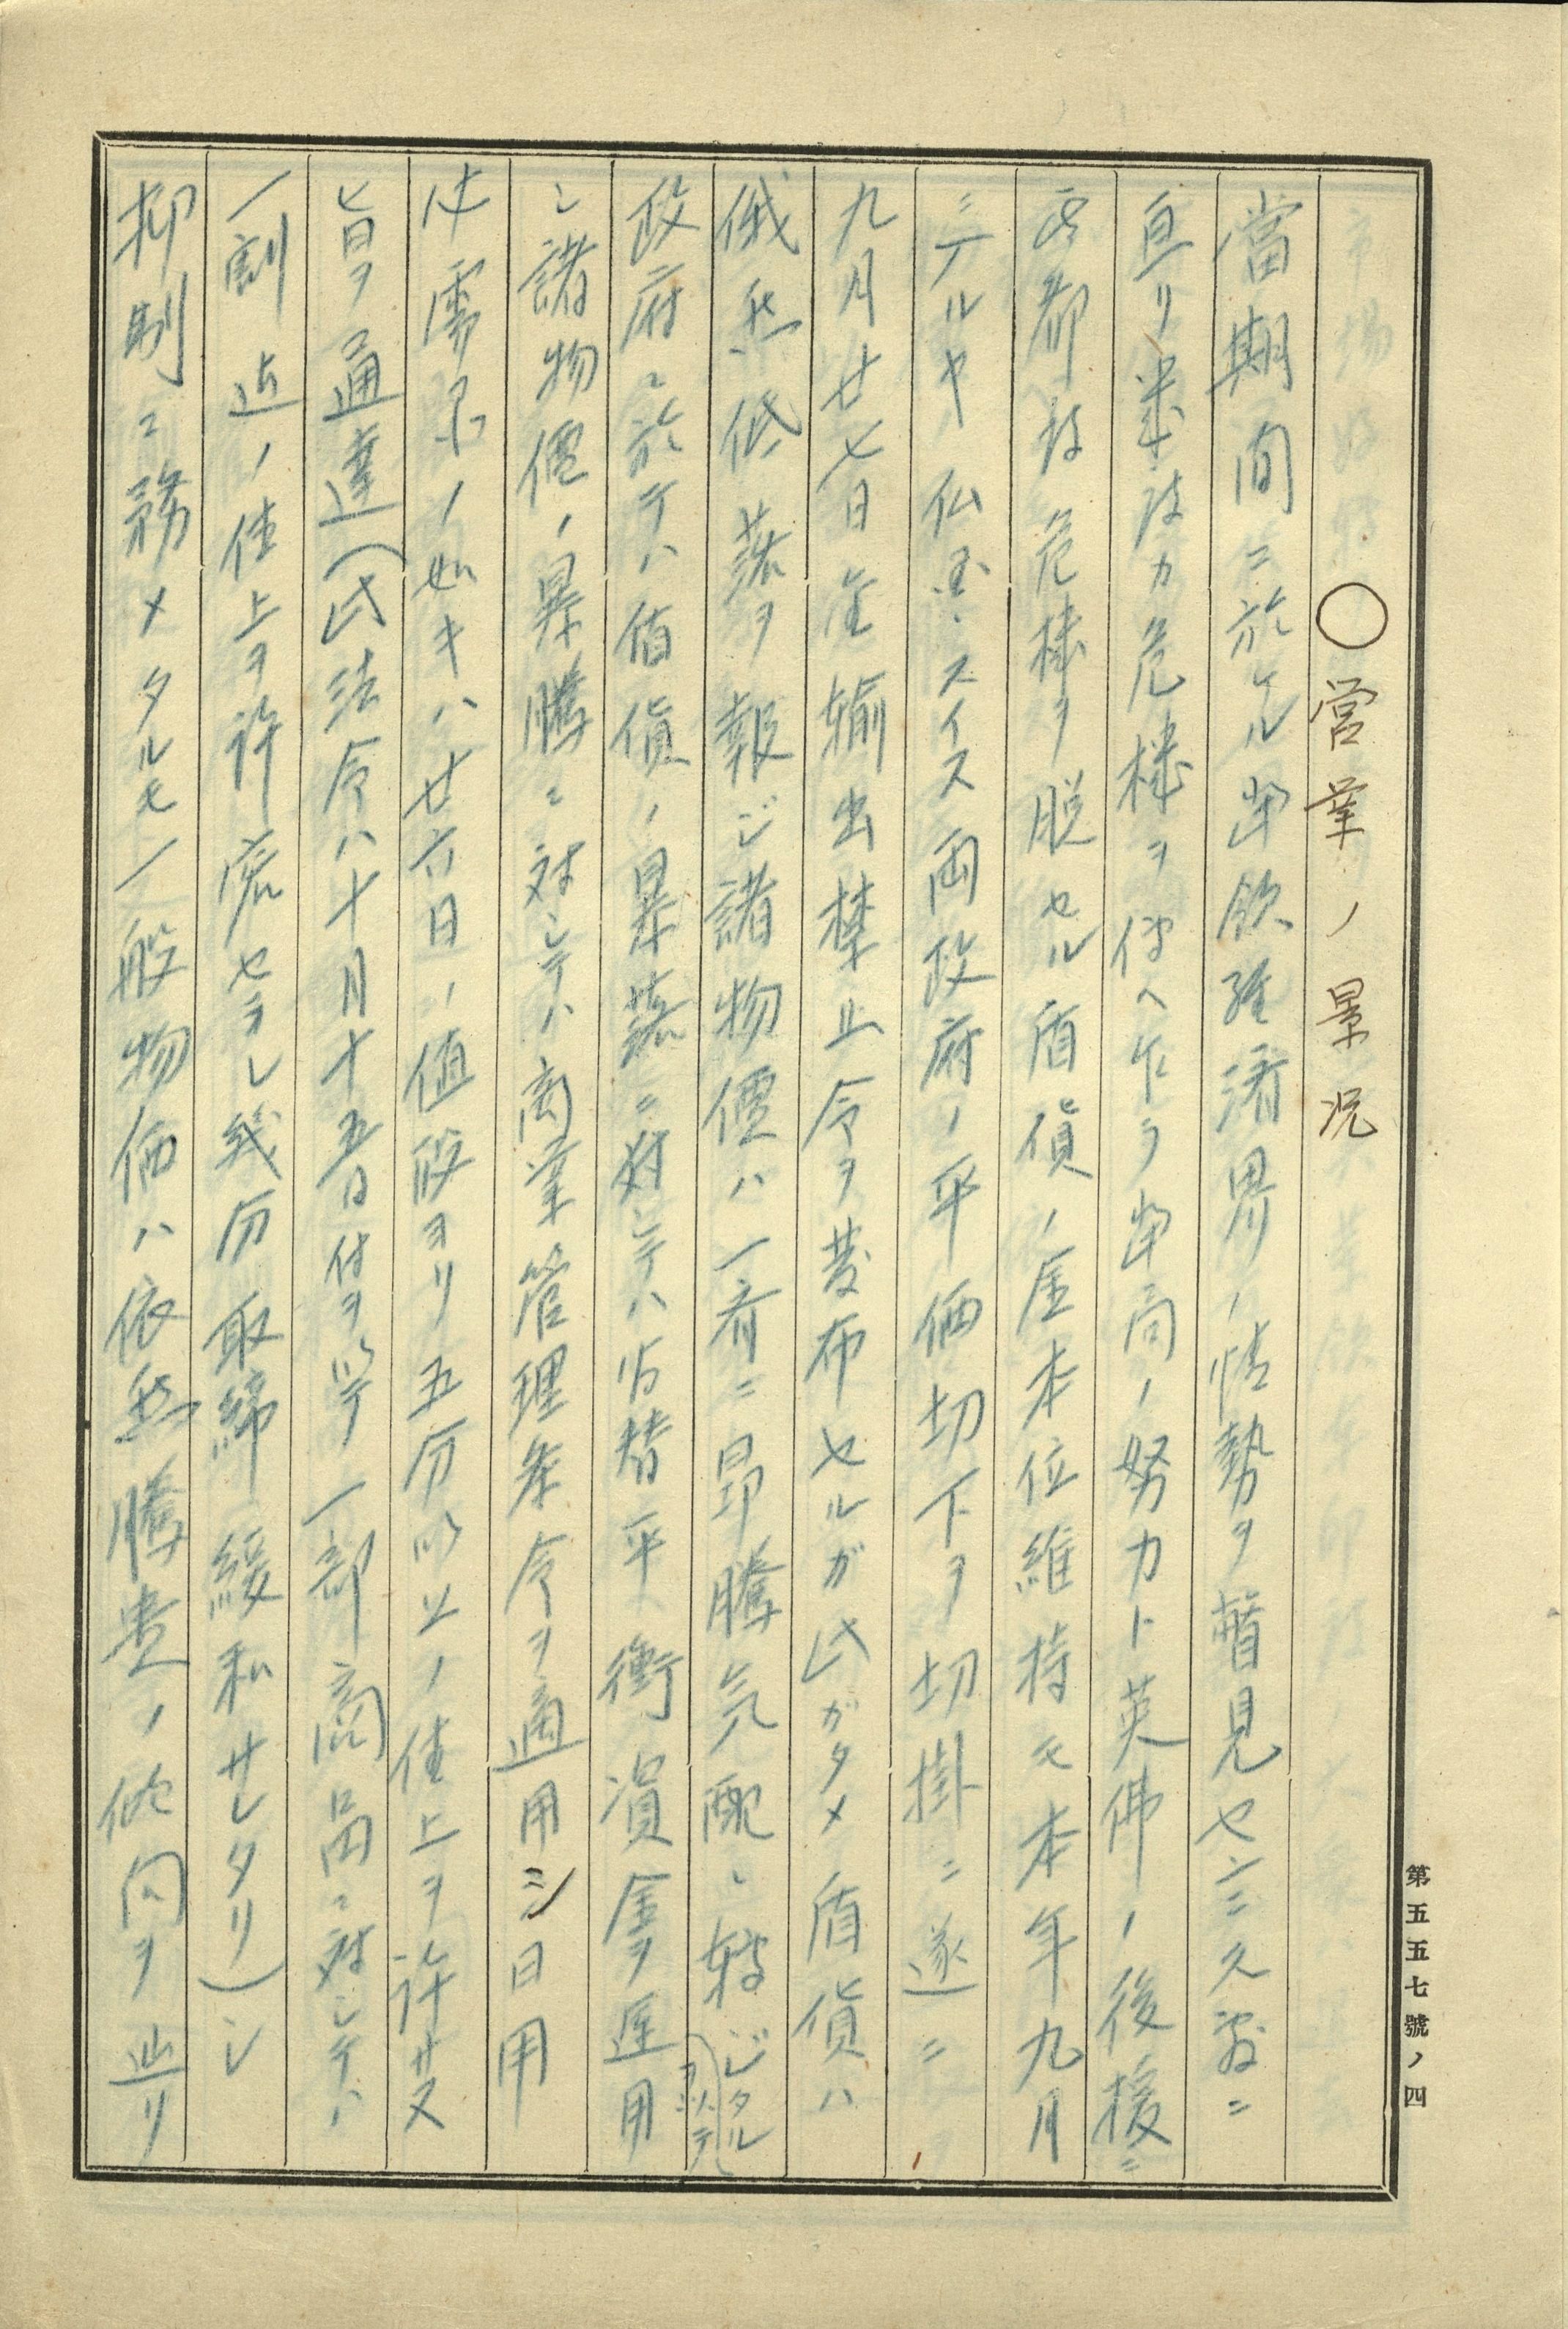 ○営業ノ景況
當期間ニ於ケル蘭領經済界ノ情勢ヲ瞥見センニ久敷ニ
亘リ幾度カ危機ヲ伝ヘ乍ラ当局ノ努力ト英佛ノ後援ニ
都度危機ヲ脱セル盾貨ノ金本位維持モ本年九月
ニ至ルヤ仏国、スイス両政府ノ平価切下ヲ切掛ニ遂ニ
九月廿七日金輸出禁止令ヲ発布セルガ此ガタメ盾貨ハ
俄然低落ヲ報ジ諸物價ハ一斉ニ昂騰気配ニ轉ジタル
政府ニ於テハ盾貨ノ暴落ニ対シテハ為替平衡資金ヲ運用
シ諸物價ノ暴騰ニ対シテハ商業管理条令ヲ適用シ日用
必需品ノ如キハ廿六日ノ値段ヨリ五分以上ノ値上ヲ許サヌ
旨ヲ通達(此法令ハ十月十五日付ヲ以テ一部商品ニ対シテハ
一割迄ノ値上ヲ許容セラレ幾分取締緩和サレタリ)シ
抑制ニ務メタルモ一般物価ハ依然騰貴ノ傾向ヲ辿リ
第五五七號ノ四